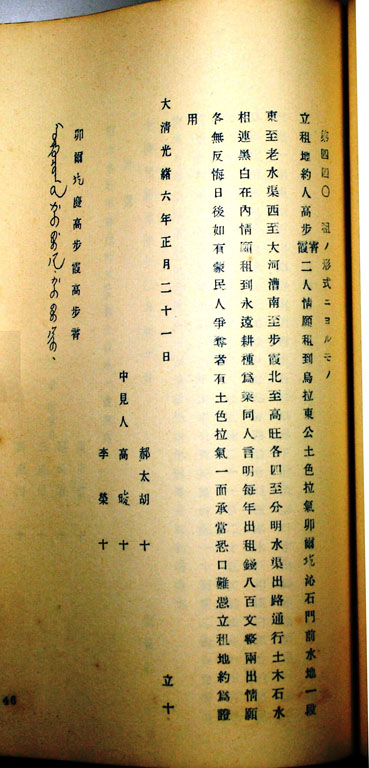 第四四〇　租ノ形式ニヨルモノ
立租地約人高步霄霞二人情願租到烏拉東公土色拉氣卯爾圪沁石門前水地一段
東至老水渠西至大河漕南至步霞北至高旺各四至分明水渠出路通行土木石水
相連黑白在內情願租到永遠耕種爲業同人言明每年出租錢八百文整兩出情願
各無反悔日後如有蒙民人爭奪者有土色拉氣一面承當恐口難憑立租地約爲證
用
大淸光緖六年正月二十一日　立十
郝太胡　十
中見人　高　十
李榮　十
卯爾圪慶高步霞高步霄
46